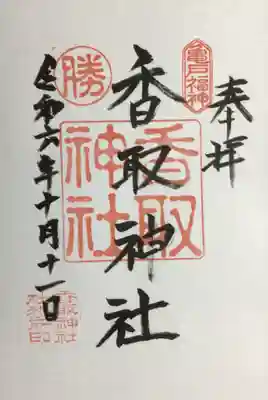 奉拝
亀戸福神
香取神社
香取神社
勝
令和六年十月十一日